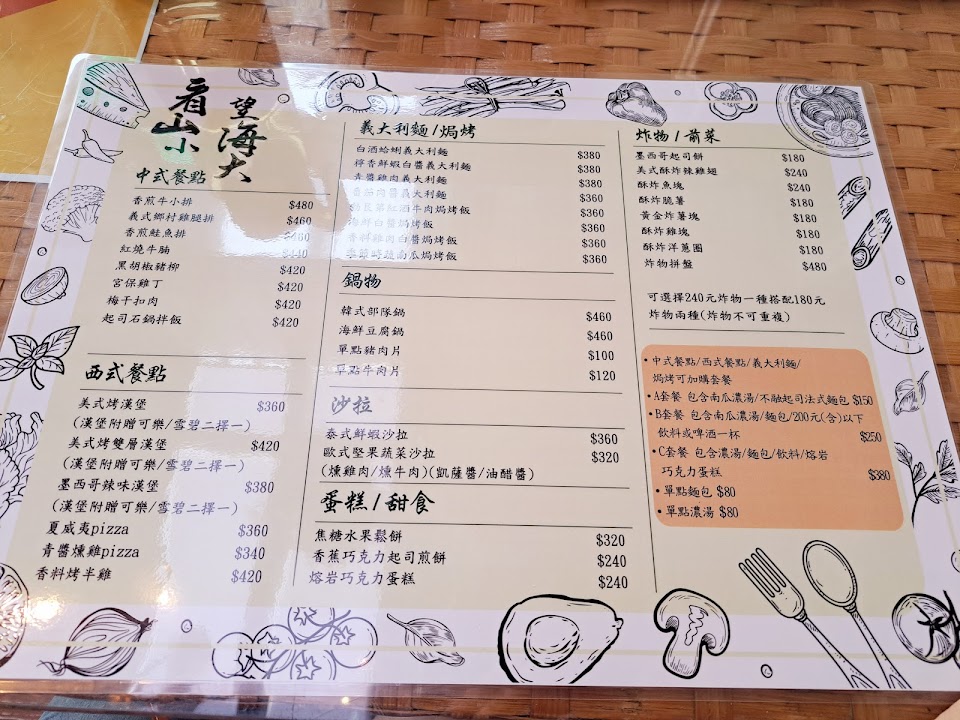 看山小
望海大
中式餐點
香煎牛小排 $480
義式鄉村雞腿排 $460
香煎鮭魚排 $460
紅燒牛腩 $440
黑胡椒豬柳 $420
宮保雞丁 $420
梅干扣肉 $420
起司石鍋拌飯 $420
西式餐點
美式烤漢堡 $360
(漢堡附贈可樂/雪碧二擇一)
美式烤雙層漢堡 $420
(漢堡附贈可樂/雪碧二擇一)
墨西哥辣味漢堡 $380
(漢堡附贈可樂/雪碧二擇一)
夏威夷pizza $360
青醬燻雞pizza $340
香料烤半雞 $420
義大利麵/焗烤
白酒蛤蜊義大利麵 $380
檸香鮮蝦白醬義大利麵 $380
青醬雞肉義大利麵 $380
番茄肉醬義大利麵 $360
紅酒牛肉焗烤飯 $360
海鮮白醬焗烤飯 $360
香料雞肉白醬焗烤飯 $360
季節時蔬南瓜焗烤飯 $360
鍋物
韓式部隊鍋 $460
海鮮豆腐鍋 $460
單點豬肉片 $100
單點牛肉片 $120
沙拉
泰式鮮蝦沙拉 $360
歐式堅果蔬菜沙拉 $320
(燻雞肉/燻牛肉)(凱薩醬/油醋醬)
蛋糕/甜食
焦糖水果鬆餅 $320
香蕉巧克力起司煎餅 $240
熔岩巧克力蛋糕 $240
炸物/前菜
墨西哥起司餅 $180
美式酥炸辣雞翅 $240
酥炸魚塊 $240
酥炸脆薯 $180
黃金炸薯塊 $180
酥炸雞塊 $180
酥炸洋蔥圈 $180
炸物拼盤 $480
可選擇240元炸物一種搭配180元
炸物兩種(炸物不可重複)
•中式餐點/西式餐點/義大利麵/
焗烤可加購套餐
•A套餐 包含南瓜濃湯/不融起司法式麵包 $150
•B套餐 包含南瓜濃湯/麵包/200元(含)以下
飲料或啤酒一杯 $250
•C套餐 包含濃湯/麵包/飲料/熔岩
巧克力蛋糕 $380
•單點麵包 $80
•單點濃湯 $80